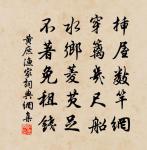 挿屋數竿網
穿籬幾尺船
水鄉菱芡足
不著免租錢
黃庶漁家詞典網集